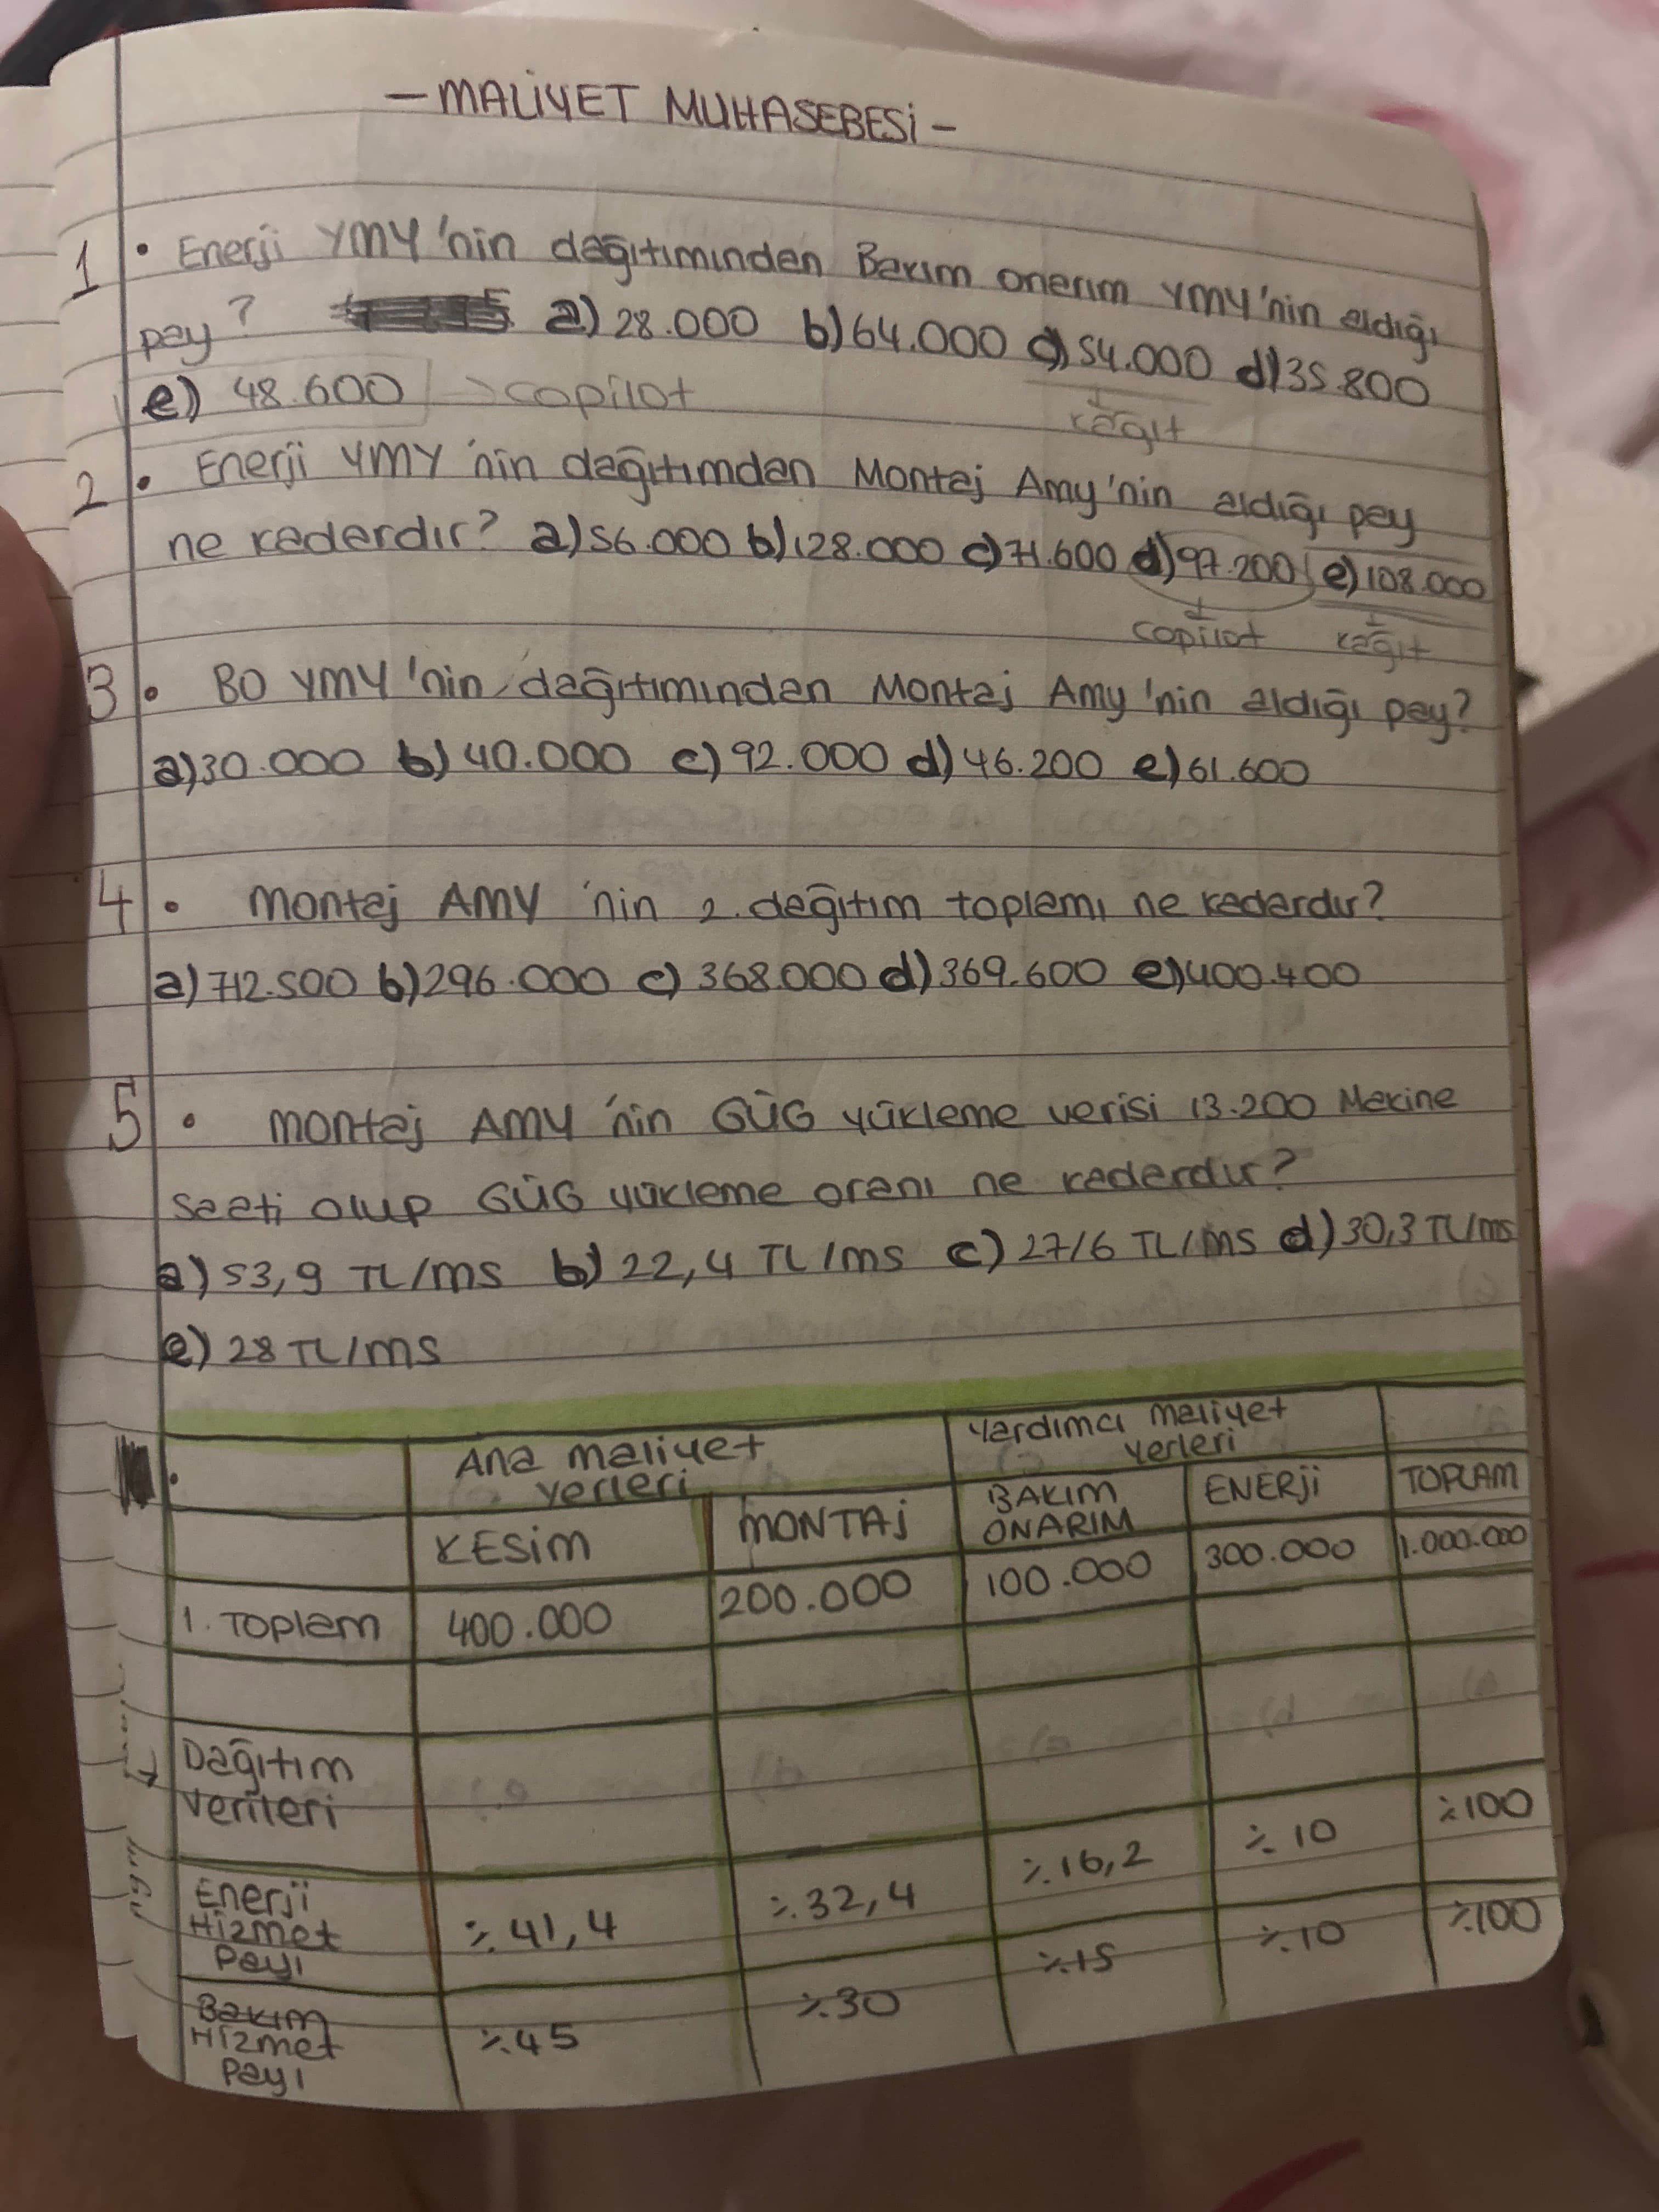 -MALİYET MUHASEBESİ-
1 • Enerji YMY'nin dağıtımından Bakım onarım YMY'nin aldığı
pay? a) 28.000 b) 64.000 c) 54.000 d) 35.800
e) 48.600 → copilot kağıt
2 • Enerji YMY'nin dağıtımdan Montaj Amy'nin aldığı pay
ne kadardır? a) 56.000 b) 128.000 c) 71.600 d) 97.200 e) 108.000
copilot kağıt
3 • BO YMY'nin dağıtımından Montaj Amy'nin aldığı pay?
a) 30.000 b) 40.000 c) 92.000 d) 46.200 e) 61.600
4 • Montaj AMY'nin 2. dağıtım toplamı ne kadardır?
a) 712.500 b) 296.000 c) 368.000 d) 369.600 e) 400.400
5 • Montaj AMY'nin GÜG yükleme verisi 13.200 Makine
saati olup GÜG yükleme oranı ne kadardır?
a) 53,9 TL/ms b) 22,4 TL/ms c) 27/6 TL/ms d) 30,3 TL/ms
e) 28 TL/ms
Ana maliyet yerleri Yardımcı maliyet yerleri
KESİM MONTAJ BAKIM ONARIM ENERJİ TOPLAM
1. Toplam 400.000 200.000 100.000 300.000 1.000.000
Dağıtım
verileri
Enerji Hizmet Payı %41,4 %32,4 %16,2 %10 %100
Bakım Hizmet Payı %45 %30 %15 %10 %100